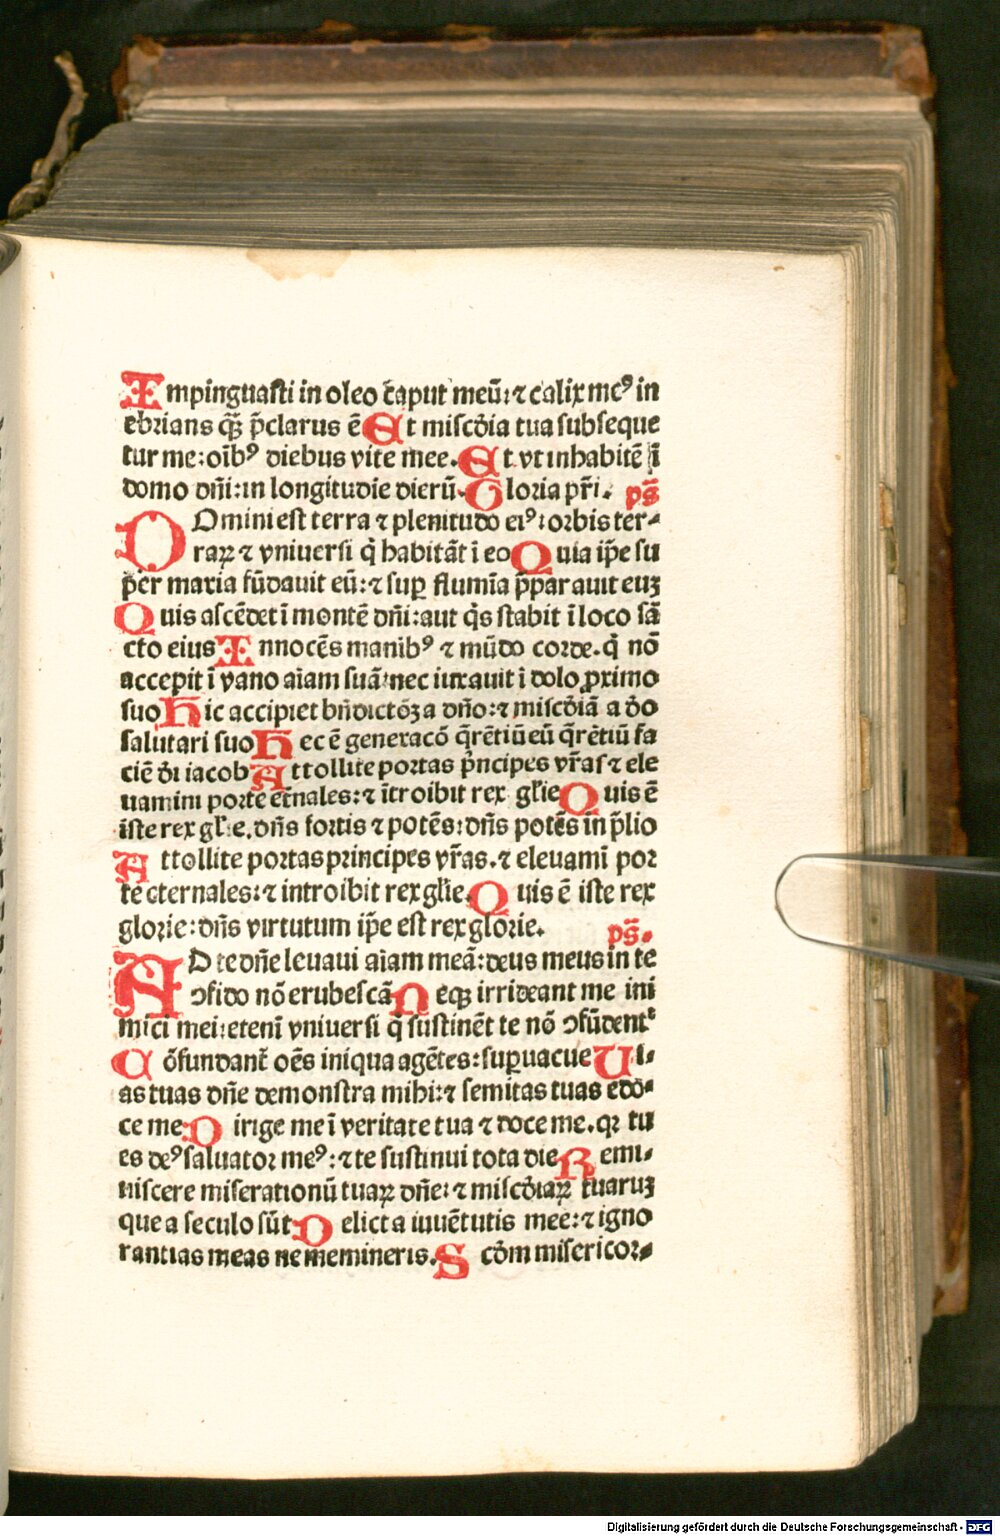 Impinguasti in oleo caput meū: ⁊ calix meꝰ in
ebrians q̄ꝫ p̄clarus ē Et misc̄dia tua subseque
tur me: oībꝰ diebus vite mee. Et vt inhabitē ī
domo dn̄i: in longitudīe dierū. Gloria pr̄i. ps̄
DOmini est terra ⁊ plenitudo eiꝰ: orbis ter⸗
raꝝ ⁊ vniuersi q̄ habitāt ī eo Quia ip̄e su
per maria fūdauit eū: ⁊ sup̱ flumīa p̄parauit euꝫ
Quis ascēdet ī montē dn̄i: aut q̇s stabit ī loco sā
cto eius Innocēs manibꝰ ⁊ mūdo corde. q̇ nō
accepit ī vano aīam suā: nec iurauit ī dolo ꝓximo
suo Hic accipiet bn̄dictōꝫ a dn̄o: ⁊ misc̄diā a d̄o
salutari suo Hec ē generacō q̄rētiū eū q̄rētiū fa
ciē d̄i iacob Attollite portas p̄ncipes vr̄as ⁊ ele
uamini porte et̄nales: ⁊ ītroibit rex gl̄ie Quis ē
iste rex gl̄ie. dn̄s fortis ⁊ potēs: dn̄s potēs in p̄lio
Attollite portas principes vr̄as. ⁊ eleuamī por
te eternales: ⁊ introibit rex gl̄ie. Quis ē iste rex
glorie: dn̄s virtutum ip̄e est rex glorie. ps̄.
AD te dn̄e leuaui aīam meā: deus meus in te
ↄfido nō erubescā Neqꝫ irrideant me ini
mici mei: etenī vniuersi q̇ sustinēt te nō ↄfūdent᷑
Cōfundant᷑ oēs iniqua agētes: sup̱uacue Ui⸗
as tuas dn̄e demonstra mihi: ⁊ semitas tuas edo⸗
ce me: Dirige me ī veritate tua ⁊ doce me. qꝛ tu
es deꝰ saluator meꝰ: ⁊ te sustinui tota die Remi⸗
niscere miserationū tuaꝝ dn̄e: ⁊ misc̄diaꝝ tuaruꝫ
que a seculo sūt Delicta iuuētutis mee: ⁊ igno
rantias meas ne memineris. Scd̄m misericor⸗
Digitalisierung gefördert durch die Deutsche Forschungsgemeinschaft - DFG